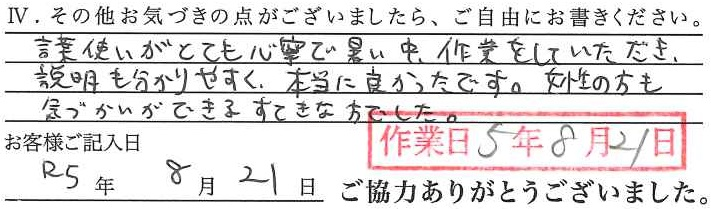 Ⅳ．その他お気づきの点がございましたら、ご自由にお書きください。
言葉使いがとても心寧で暑い中、作業をしていただき、
説明も分かりやすく、本当に良かったです。女性の方も
気づかいができるすてきな方でした。
お客様ご記入日
作業日 5年8月21日
R5年 8月21日 ご協力ありがとうございました。